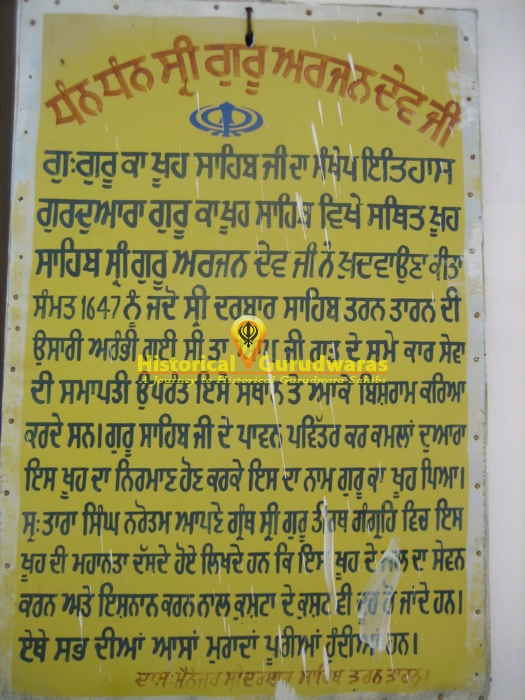 ਧੰਨ ਧੰਨ ਸ੍ਰੀ ਗੁਰੂ ਅਰਜਨ ਦੇਵ ਜੀ
ਗੁ:ਗੁਰੂ ਕਾ ਖੂਹ ਸਾਹਿਬ ਜੀ ਦਾ ਸੰਖੇਪ ਇਤਿਹਾਸ
ਗੁਰਦੁਆਰਾ ਗੁਰੂ ਕਾ ਖੂਹ ਸਾਹਿਬ ਵਿਖੇ ਸਥਿਤ ਖੂਹ
ਸਾਹਿਬ ਸ੍ਰੀ ਗੁਰੂ ਅਰਜਨ ਦੇਵ ਜੀ ਨੇ ਖੁਦਵਾਉਣਾ ਕੀਤਾ
ਸੰਮਤ 1647 ਨੂੰ ਜਦੋ ਸ੍ਰੀ ਦਰਬਾਰ ਸਾਹਿਬ ਤਰਨ ਤਾਰਨ ਦੀ
ਉਸਾਰੀ ਅਰੰਭੀ ਗਈ ਸੀ ਤਾਂ ਜੀ ਦੇ ਸਮੇ ਕਾਰ ਸੇਵਾ
Historical Gurudwaras
A Journey to Historical Gurudwara Sahibs
ਦੀ ਸਮਾਪਤੀ ਉਪਰੰਤ ਇਸ ਸਥਾਨ ਤੇ ਆਕੇ ਬਿਸ਼ਰਾਮ ਕਰਿਆ
ਕਰਦੇ ਸਨ। ਗੁਰੂ ਸਾਹਿਬ ਜੀ ਦੇ ਪਾਵਨ ਪਵਿੱਤਰ ਕਰ ਕਮਲਾਂ ਦੁਆਰਾ
ਇਸ ਖੂਹ ਦਾ ਨਿਰਮਾਣ ਹੋਣ ਕਰਕੇ ਇਸ ਦਾ ਨਾਮ ਗੁਰੂ ਕਾ ਖੂਹ ਪਿਆ।
ਸ੍ਰ: ਤਾਰਾ ਸਿੰਘ ਨਰੋਤਮ ਆਪਣੇ ਗ੍ਰੰਥ ਸ੍ਰੀ ਗੁਰੂ ਤੀਰਥ ਗੰਗ੍ਰਹਿ ਵਿਚ ਇਸ
ਖੂਹ ਦੀ ਮਹਾਨਤਾ ਦੱਸਦੇ ਹੋਏ ਲਿਖਦੇ ਹਨ ਕਿ ਇਸ ਖੂਹ ਦੇ ਜਲ ਦਾ ਸੇਵਨ
ਕਰਨ ਅਤੇ ਇਸ਼ਨਾਨ ਕਰਨ ਨਾਲ ਕੁਸ਼ਟਾ ਦੇ ਕੁਸ਼ਟ ਵੀ ਦੂਰ ਹੋ ਜਾਂਦੇ ਹਨ।
ਏਥੇ ਸਭ ਦੀਆਂ ਆਸਾਂ ਮੁਰਾਦਾਂ ਪੂਰੀਆਂ ਹੁੰਦੀਆਂ ਹਨ।
ਦਾਸ: ਮੈਨੇਜਰ ਸ੍ਰੀ ਦਰਬਾਰ ਸਾਹਿਬ ਤਰਨ ਤਾਰਨ।